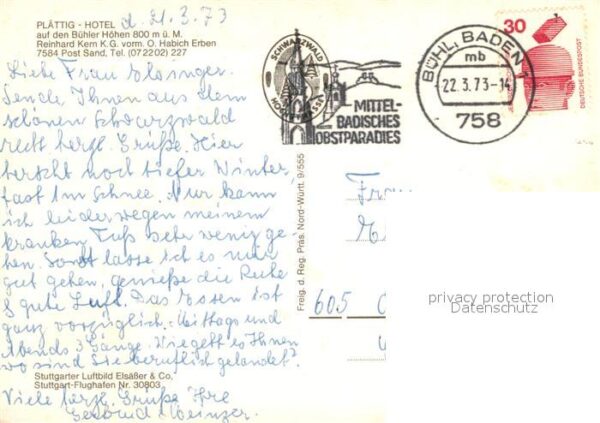 PLÄTTIG - HOTEL
auf den Bühler Höhen 800 m ü. M.
Reinhard Kern K.G. vorm. O. Habich Erben
7584 Post Sand, Tel. (072202) 227
d. 21.3.73
Liebe Frau
Sende Ihnen aus dem
schönen Schwarzwald
recht herzl. Grüße. Hier
herscht noch tiefer Winter,
fast 1m Schnee. Nur kann
ich leider wegen meinem
kranken Fuß sehr wenig ge-
hen. Sonst lasse ich es mir
gut gehen, genieße die Ruhe
& gute Luft. Das Essen ist
ganz vorzüglich. Mittags und
Abends 3 Gänge. Wie geht es Ihnen
wo sind Sie beruflich gelandet?
Stuttgarter Luftbild Elsäßer & Co,
Stuttgart-Flughafen Nr. 30803
Viele herzl. Grüße Ihre
Freig. d. Reg. Präs. Nord-Württ. 9/555
SCHWARZWALD
HOCHSTRASSE
MITTEL-
BADISCHES
OBSTPARADIES
BÜHL, BADEN 1
mb
22.3.73-14
758
30
DEUTSCHE BUNDESPOST
605
privacy protection
Datenschutz